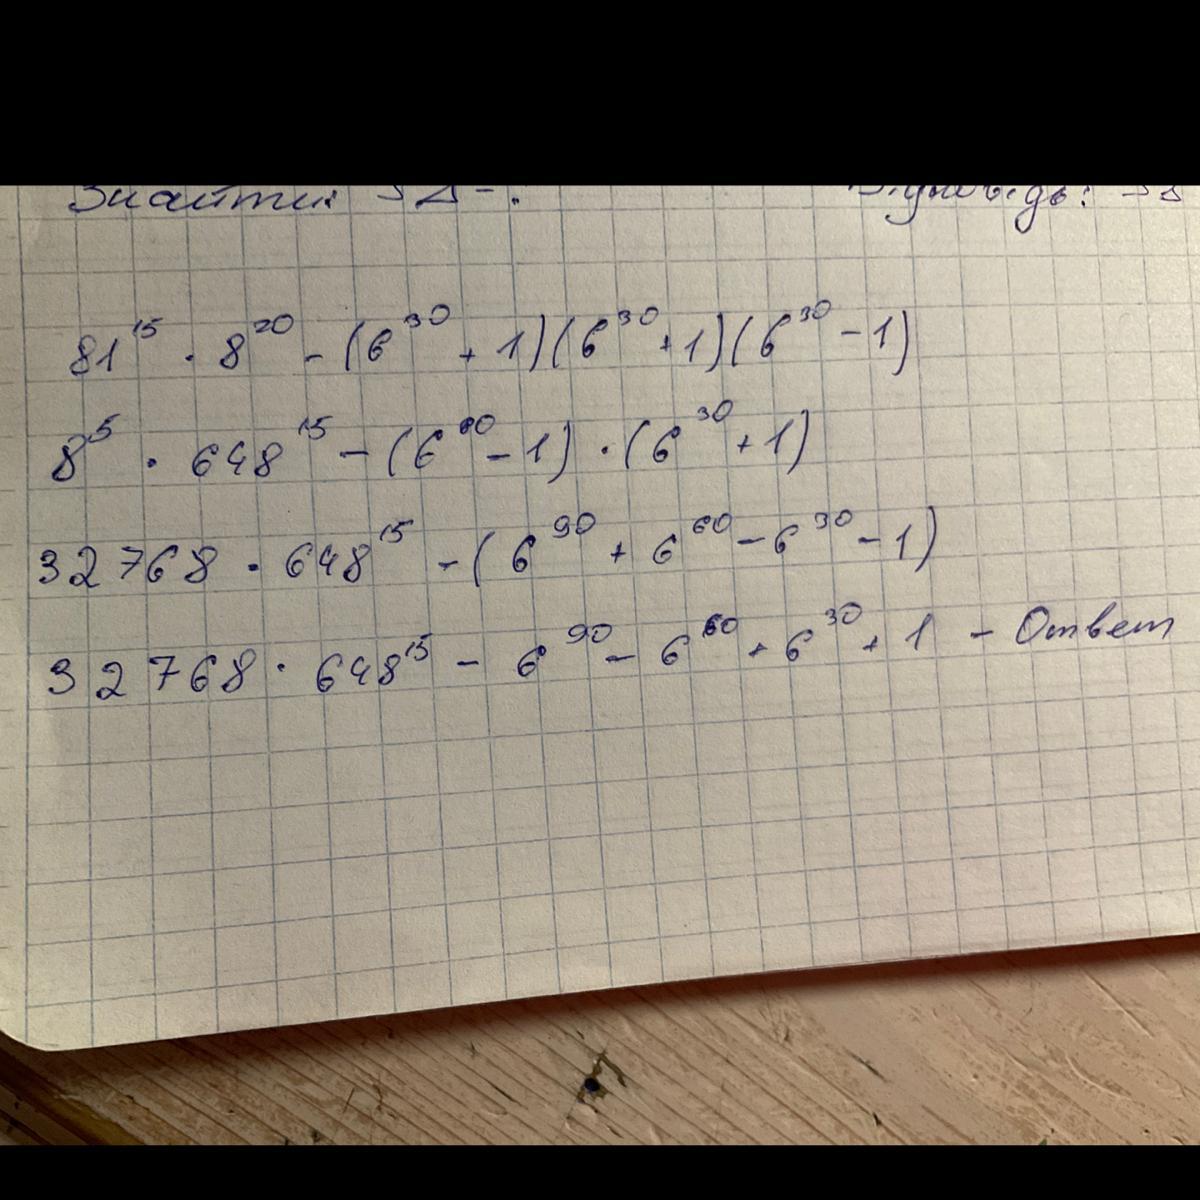 Знайти:
81¹⁵ · 8²⁰ - (6³⁰ + 1)(6³⁰ + 1)(6³⁰ - 1)
8⁵ · 648¹⁵ - (6⁶⁰ - 1) · (6³⁰ + 1)
32768 · 648¹⁵ - (6⁹⁰ + 6⁶⁰ - 6³⁰ - 1)
32768 · 648¹⁵ - 6⁹⁰ - 6⁶⁰ + 6³⁰ + 1 - Ответ